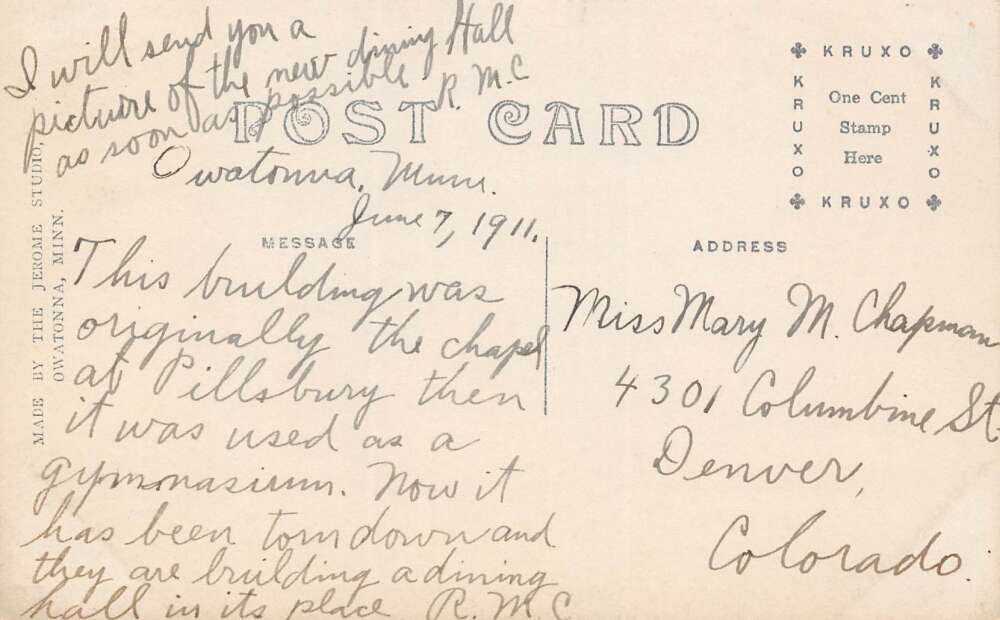 I will send you a
picture of the new dining Hall
as soon as possible R. M. C
POST CARD
Owatonna, Minn.
June 7, 1911.
MESSAGE
This building was
originally the chapel
at Pillsbury then
it was used as a
gymnonasium. Now it
has been torn down and
they are building a dining
hall in its place R. M. C
MADE BY THE JEROME STUDIO,
OWATONNA, MINN.
KRUXO
KRUXO
KRUXO
One Cent
Stamp
Here
KRUXO
ADDRESS
Miss Mary M. Chapman
4301 Columbine St.
Denver,
Colorado.